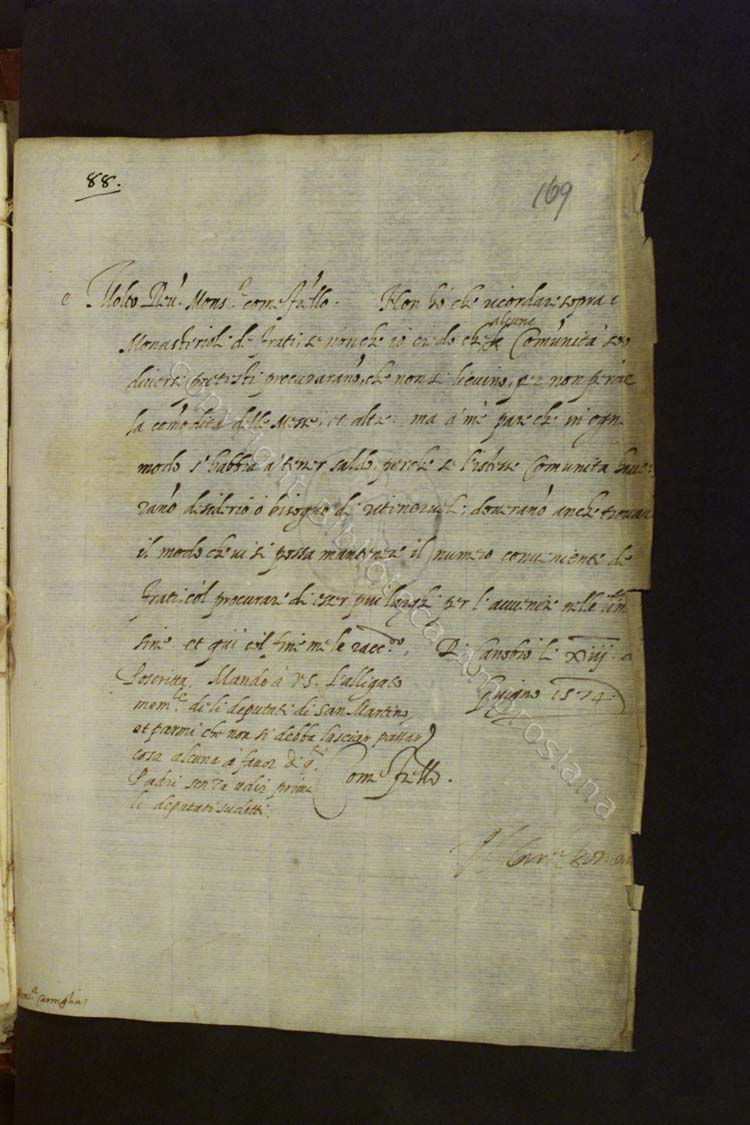 88.
169
Molto Reu. Mons.r come fr̃llo. Non hò che ricordare sopra i
Monasterioli de frati, se non che io credo che alcune Com̃unità sotto
diuersi pretesti procuraran̄o, che non si lieuino, per non perder
la com̃odità delle Messe, et altre: ma à me pare che in ogni
modo s'habbia à tener saldo, perche se l'istesse Comunità haue-
ran̄o desiderio ò bisogno di ritinerueli, doueran̄o anche trouar
il modo che ui si possa mantenere il numero conueniente de
frati, col procurare di esser più larghi per l'auuenire nelle
sine. et qui col fine me le racc.do. Di Canobio li xiiij. di
Giugno 1574.
Poscritta. Mando à V S. l'alligato
mem.le de li deputati di San Martino,
et parmi che non si debba lasciar passar
cosa alcuna à fauor di q.ti
Padri senza udir prima
li deputati sudetti.
Come fr̃llo.
Mons.r Carniglia
Copyright Biblioteca Ambrosiana